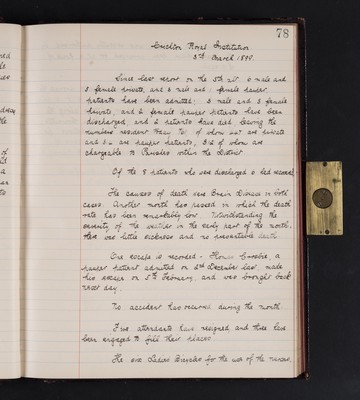 78
Crichton Royal Institution
5th March 1898.
Since last report on the 5th ult. 6 male and
5 female private, and 2 male and 1 female pauper
patients have been admitted; 3 male and 2 female
private, and 2 female pauper patients have been
discharged, and 2 patients have died leaving the
number resident of whom are private
and are pauper patients, 312 of whom are
chargeable to Parishes within the District
Of the 8 patients who were discharged 6 had recovered
The causes of death were Brain Disease in both
cases. Another month has passed in which the death
rate has been remarkably low. Notwithstanding the
severity of the weather in the early part of the month,
there was little sickness and no preventable death
One escape is recorded - a
pauper patient admitted on 2nd December last, made
his escape on 5th February, and was brought back
next day.
No accident has occurred during the month
Five attendants have resigned and three have
been engaged to fill their places
The Ladies Bicycles for the use of the nurses